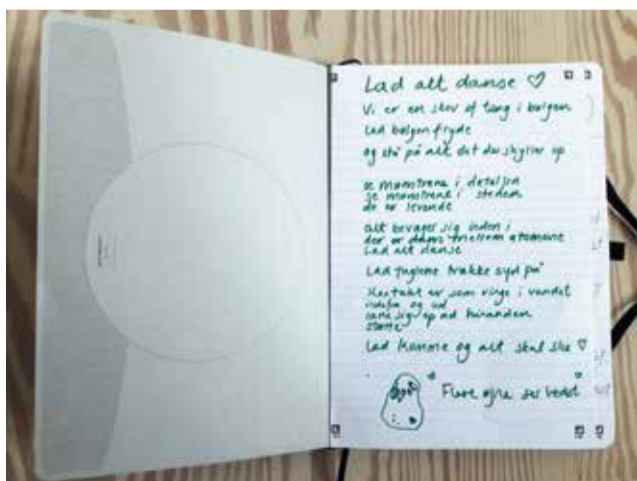 Lad alt danse ♡
Vi er en skov af tang i bølgen
Lad bølgen fryde
og stå på alt det der skyller op
se mønstrene i detaljen
se mønstrene i stedem
de er levende
alt bevæger sig inden i
der er dans mellem atomerne
Lad alt danse
Lad fuglene trække syd på
Kontakt er som ringe i vandet
indefra og ud
læne sig op ad hinanden
støtte
Lad komme og alt skal ske ♡
"Flere øjne ser bedst"